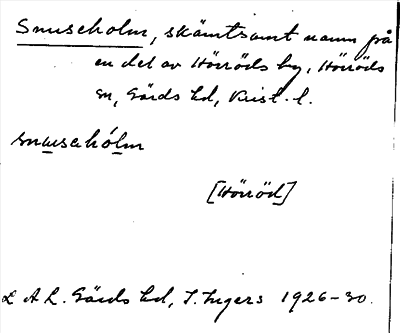 Snuseholm, skämtsamt namn på
en del av Hörröds by, Hörröds
sn, Gärds hd, Krist. l.
snusehólm
[Hörröd]
LAL. Gärds hd, I. Ingers 1926-30.